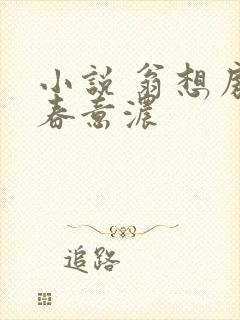 小說 翁想
春意濃
追路